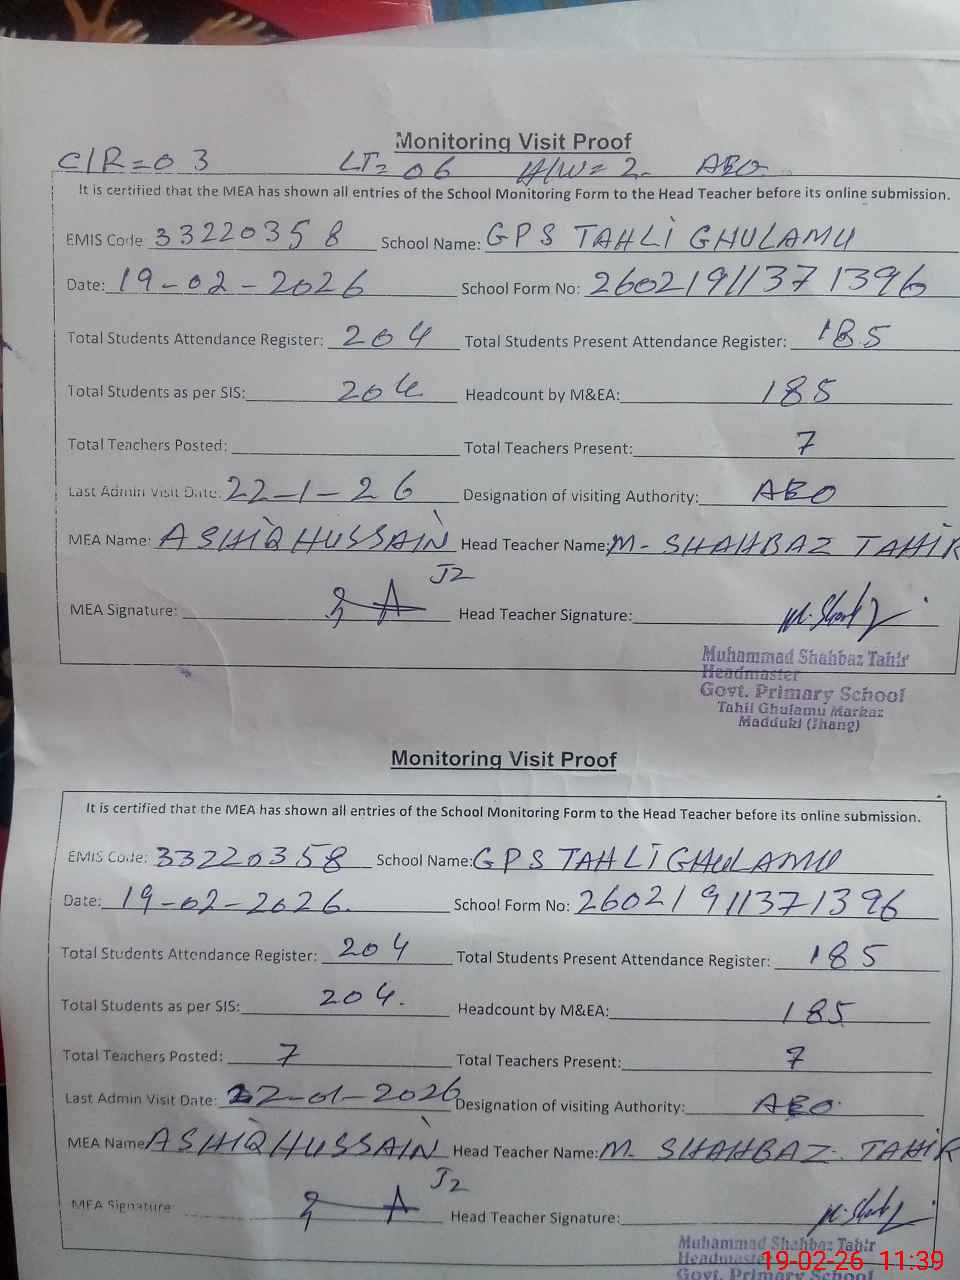 Monitoring Visit Proof
C/R=03 LT=06 H/W=2. AEO
It is certified that the MEA has shown all entries of the School Monitoring Form to the Head Teacher before its online submission.
EMIS Code: 33220358 School Name: GPS TAHLI GHULAMU
Date: 19-02-2026 School Form No: 26021911371396
Total Students Attendance Register: 204 Total Students Present Attendance Register: 185
Total Students as per SIS: 204 Headcount by M&EA: 185
Total Teachers Posted: Total Teachers Present: 7
Last Admin Visit Date: 22-1-26 Designation of visiting Authority: AEO
MEA Name: ASHIQ HUSSAIN Head Teacher Name: M- SHAHBAZ TAHIR
J2
MEA Signature: Head Teacher Signature:
Muhammad Shahbaz Tahir
Headmaster
Govt. Primary School
Tahli Ghulamu Markaz
Madduki (Jhang)
Monitoring Visit Proof
It is certified that the MEA has shown all entries of the School Monitoring Form to the Head Teacher before its online submission.
EMIS Code: 33220358 School Name: GPS TAHLI GHULAMU
Date: 19-02-2026. School Form No: 26021911371396
Total Students Attendance Register: 204 Total Students Present Attendance Register: 185
Total Students as per SIS: 204. Headcount by M&EA: 185
Total Teachers Posted: 7 Total Teachers Present: 7
Last Admin Visit Date: 22-01-2026 Designation of visiting Authority: AEO.
MEA Name ASHIQ HUSSAIN Head Teacher Name: M. SHAHBAZ. TAHIR
J2
MEA Signature: Head Teacher Signature:
Muhammad Shahbaz Tahir
Headmaster
Govt. Primary School
19-02-26 11:39